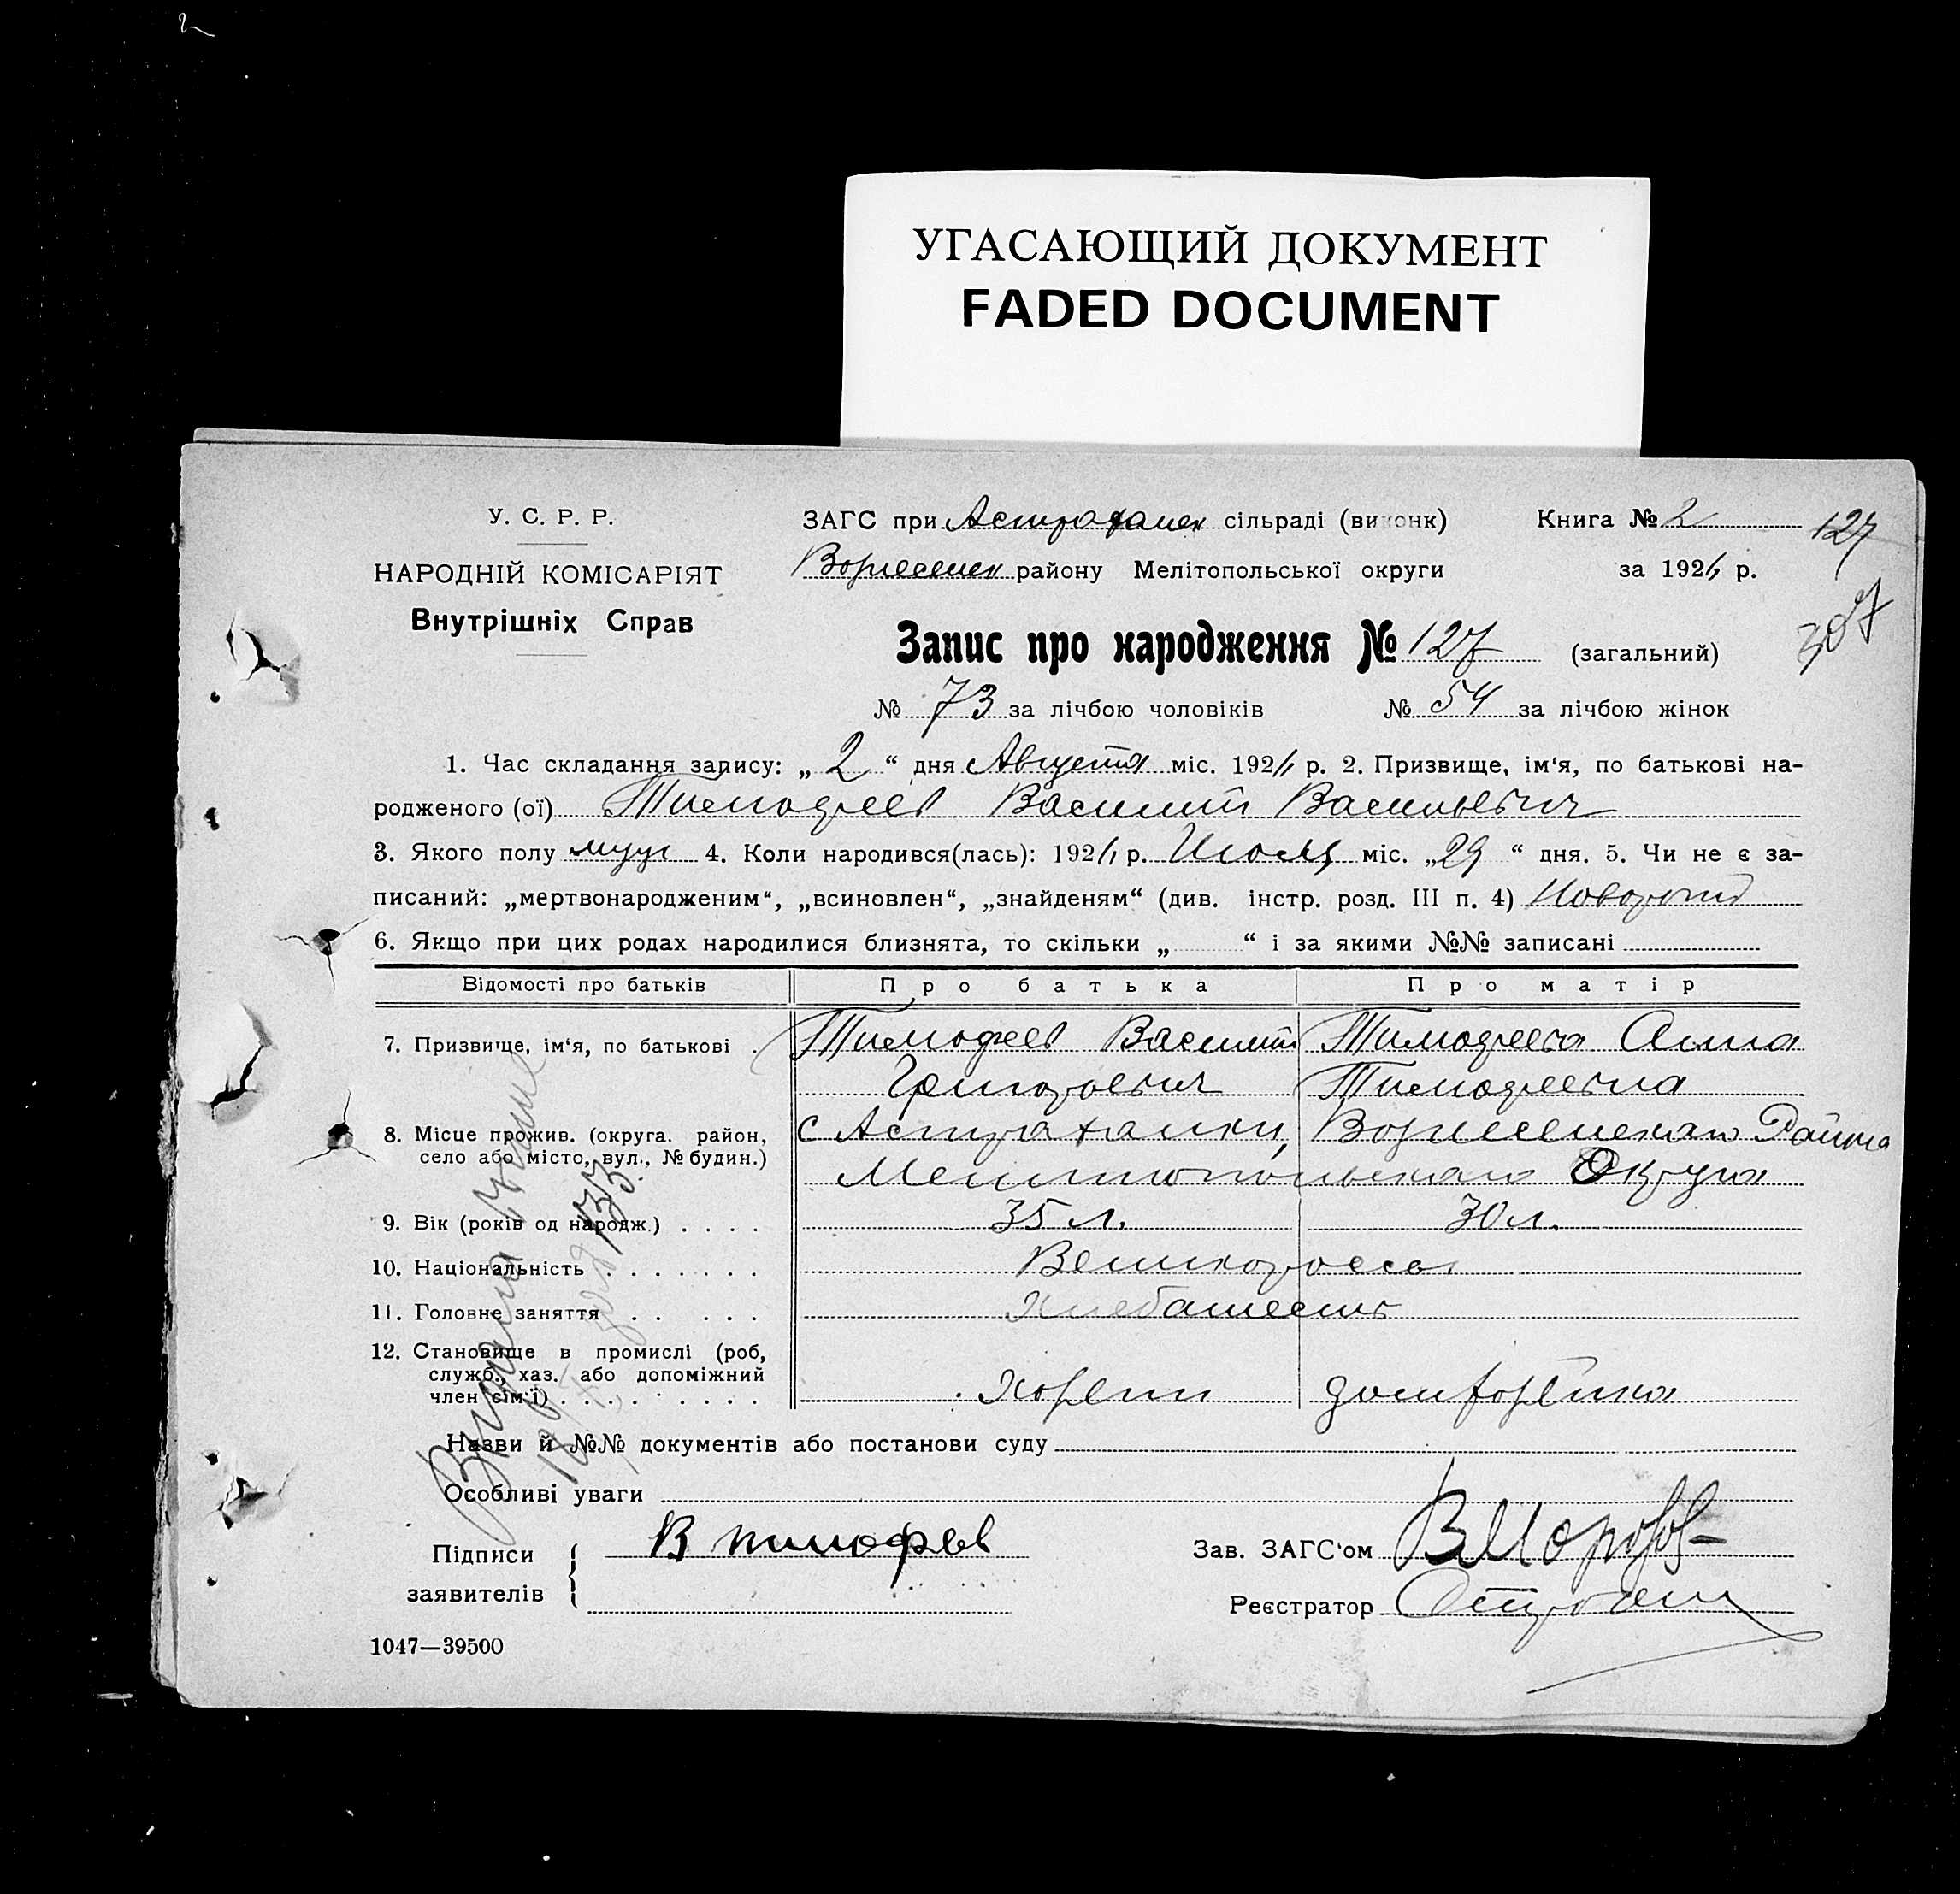 УГАСАЮЩИЙ ДОКУМЕНТ
FADED DOCUMENT
У. С. Р. Р.
НАРОДНІЙ КОМІСАРІЯТ
Внутрішніх Справ
ЗАГС при Астраханск сільраді (виконк)
Вознесенск району Мелітопольської округи
Книга № 2
за 192 р.
127
307
Запис про народження № 127 (загальний)
№ 73 за лічбою чоловіків № 54 за лічбою жінок
1. Час складання запису: „ 2 “ дня Августа міс. 192 р. 2. Призвище, ім‘я, по батькові на-
родженого (ої) Тимофеев Василий Васильевич
3. Якого полу муж 4. Коли народився(лась): 192 р. Июля міс. „29 “ дня. 5. Чи не є за-
писаний: „мертвонародженим“, „всиновлен“, „знайденям“ (див. інстр. розд. III п. 4)
6. Якщо при цих родах народилися близнята, то скільки „ “ і за якими №№ записані
Відомості про батьків Про батька Про матір
7. Призвище, ім‘я, по батькові . Тимофеев Василий Тимофеева Анна
Григорьевич Тимофеевна
8. Місце прожив. (округа. район, с Астраханки, Вознесенскаго Района
село або місто, вул., № будин.) Мелитопольскаго Округа
9. Вік (років од народж.) . . . . 35 л. 30 л.
10. Національність . . . . . . . Великороссы
11. Головне заняття . . . . . Хлебопашество
12. Становище в промислі (роб,
служб., хаз. або допоміжний
член сім‘ї) . . . . . . . . . Хозяин домхозяйка
Назви й №№ документів або постанови суду
Особливі уваги
Підписи
заявителів
В Тимофеев
Зав. ЗАГС‘ом В Морозов
Реєстратор
1047—39500